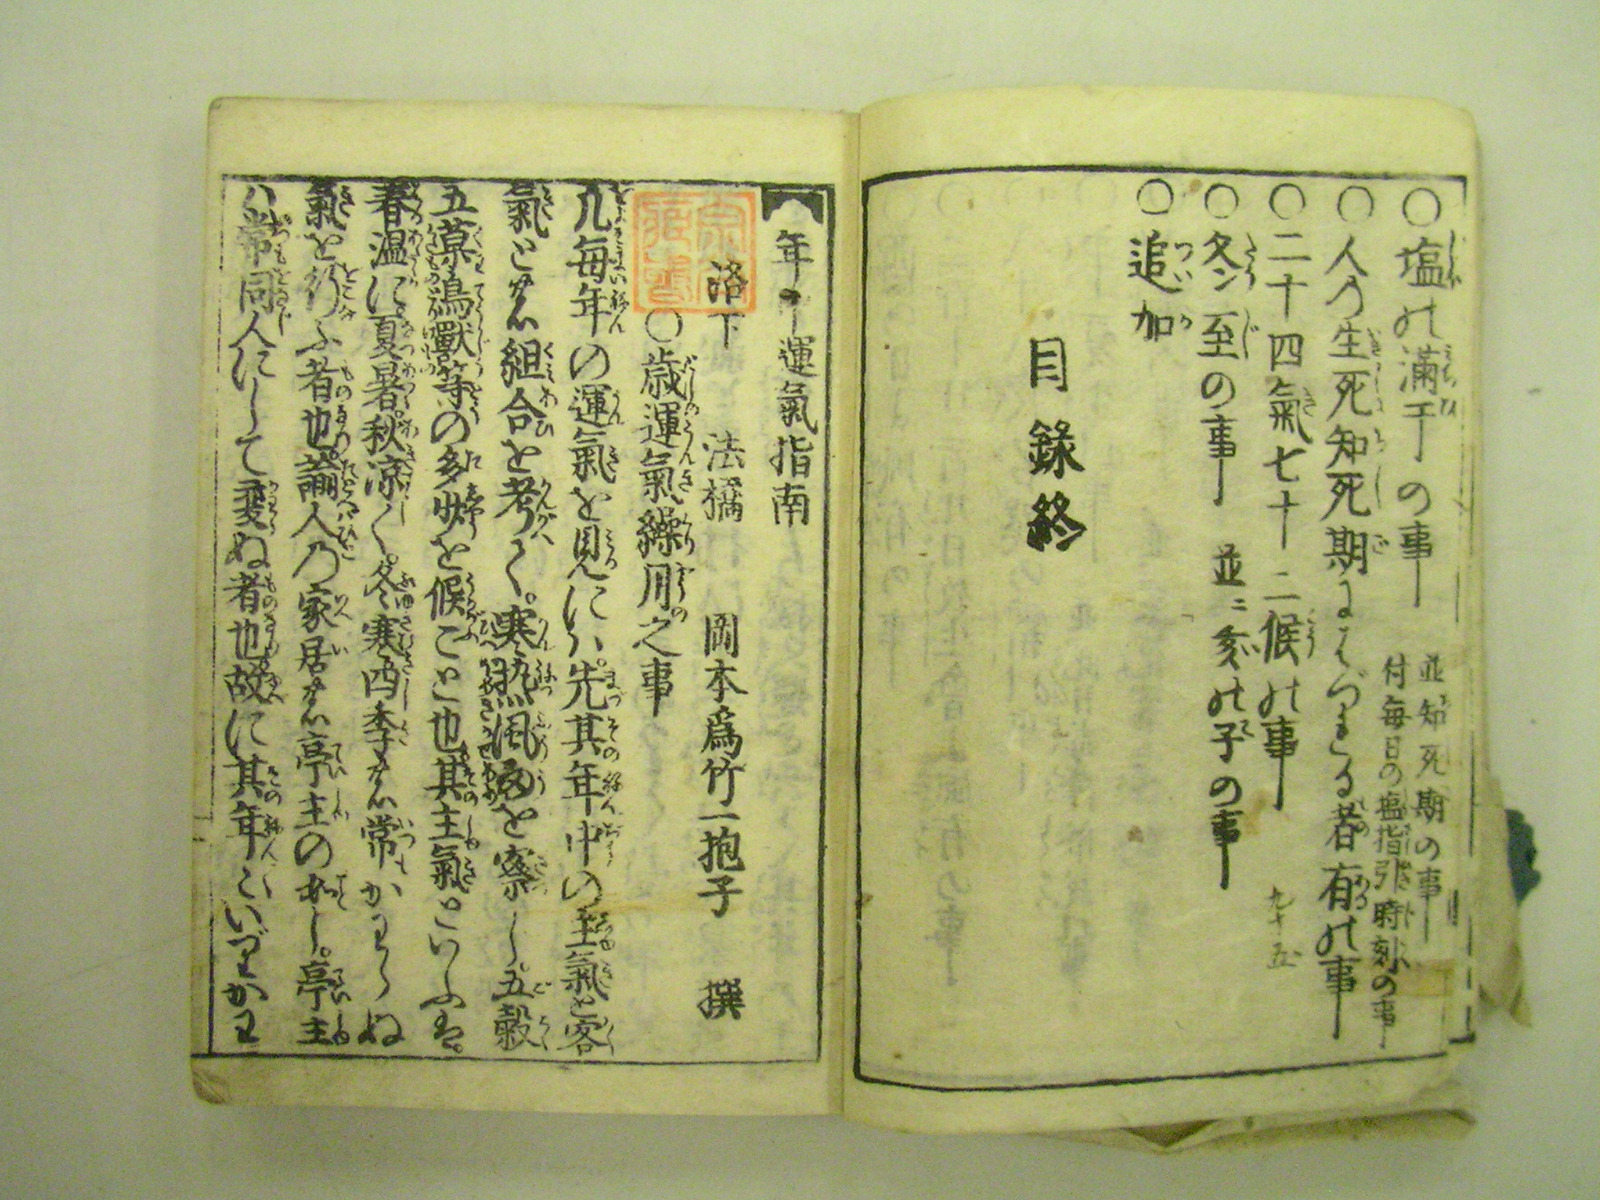 ○塩の満干の事
並知死期の事
付毎日の塩指引時刻の事
○人の生死知死期によらづまる者有の事
○二十四氣七十二候の事
○冬至の事　並ニ亥の子の事
○追加
九十五
目録終
年中運氣指南
洛下　法橋　岡本爲竹一抱子　撰
○歳運氣繰用之事
凡毎年の運氣を見んにハ先其年中の主氣と客
氣とを組合を考へく。寒熱風雨を察し五穀
五菓鳥獸等の多少を候こと也其主氣といふは。
春温に夏暑。秋凉く。冬寒四季を常かわらぬ
氣を行ふ者也。譬人の家居を亭主の如し。亭主
ハ常同人にして変ぬ者也故に其年〻いつもかわ